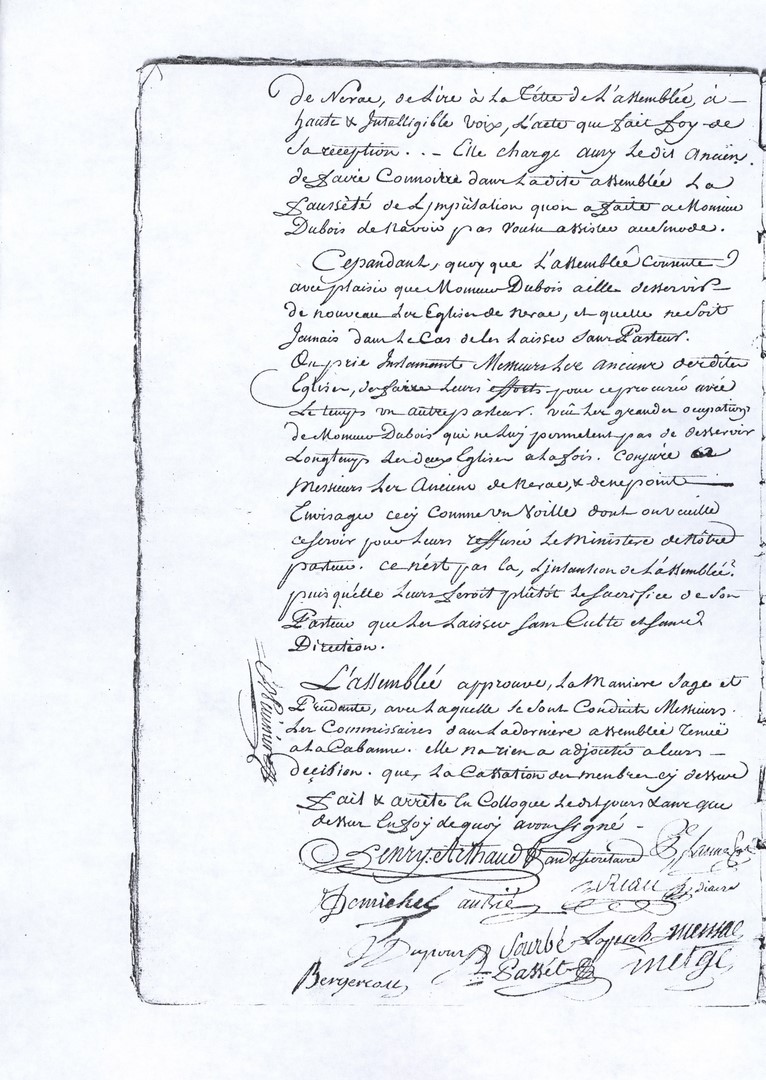 De Nerac, de Lire à La Tétte de L'assemblée, à
haute & Intelligible voix, L'acte qui fait foy de
Sa réception. .. Elle charge aussy Le dit Ancien
de faire Connoitre dans Ladite assemblée La
faussèté de L'jmputation quon a faite a Monsieur
Dubois de Navoir pas voulu assister au Sinode.
Cepandant, quoy que L'assembleé Consente
avec plaisir que Monsieur Dubois aille desservir
de nouveau Les Eglises de Nerac, et quelle ne Soit
Jamais dans Le Cas de Les Laisser Sans Pasteur.
On prie Instament Messieurs Les anciens desdites
Eglises, de faire Leurs efforts pour ce procurer avec
Le temps un autre pasteur. vuë Les grandes ocupations
de Monsieur Dubois qui ne Luy permetent pas de desservir
Longtemps Les deux Eglises a La fois. Conjure
Messieurs Les Anciens de Nerac, & de ne point
Envisager cecy Comme un Voille dont on veuille
ce servir pour Leurs reffuser Le Ministere de Nôtre
pasteur. ce n'est pas la, L'jntention de L'assemblée.
puis qu'elle Leurs feroit plûtôt Le Sacrifice de Son
Pasteur que Les Laisser Sans Culte et Sans
Direction.
L'assemblée approuve, La Maniere Sage et
Prudante, avec Laquelle Se Sont Conduits Messieurs
Les Commissaires dans La derniere assemblée Tenuë
a La Cabanne. elle na rien a adjouter a Leurs
decision. que, La Cassation des membres cy dessus
Fait & arrêté En Colloque Le dit jours & an que
dessus En foy de quoy avons signé
Henry Arthaud &
Secretaire
Demichel
Dupouy
Sourbé
Lapisch
mensac
Bergereau
Passét
mergé